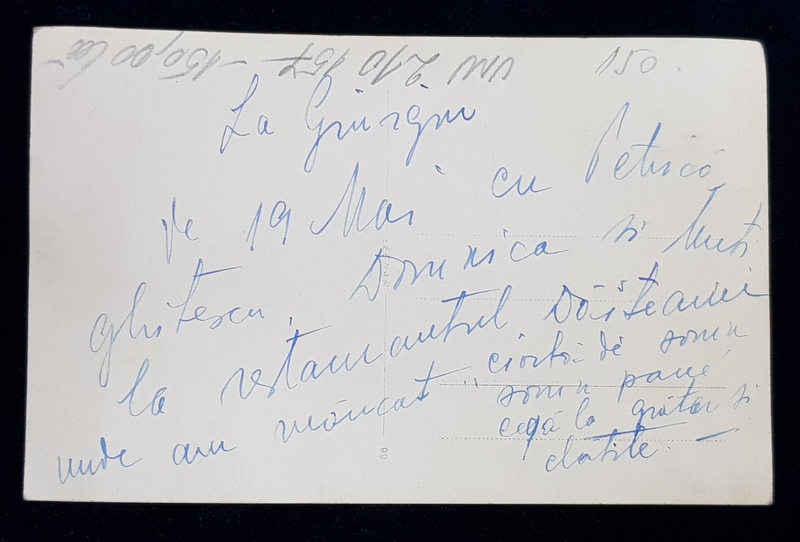 VNU 210 157 - 150,00 lei
150.
La Giurgiu
de 19 Mai cu Petrică
Dominica si Nuți
la restaurantul Dósteanu
unde am mâncat "ciorbă de somn
somn pané,
cegă la grătar si
clătite. —